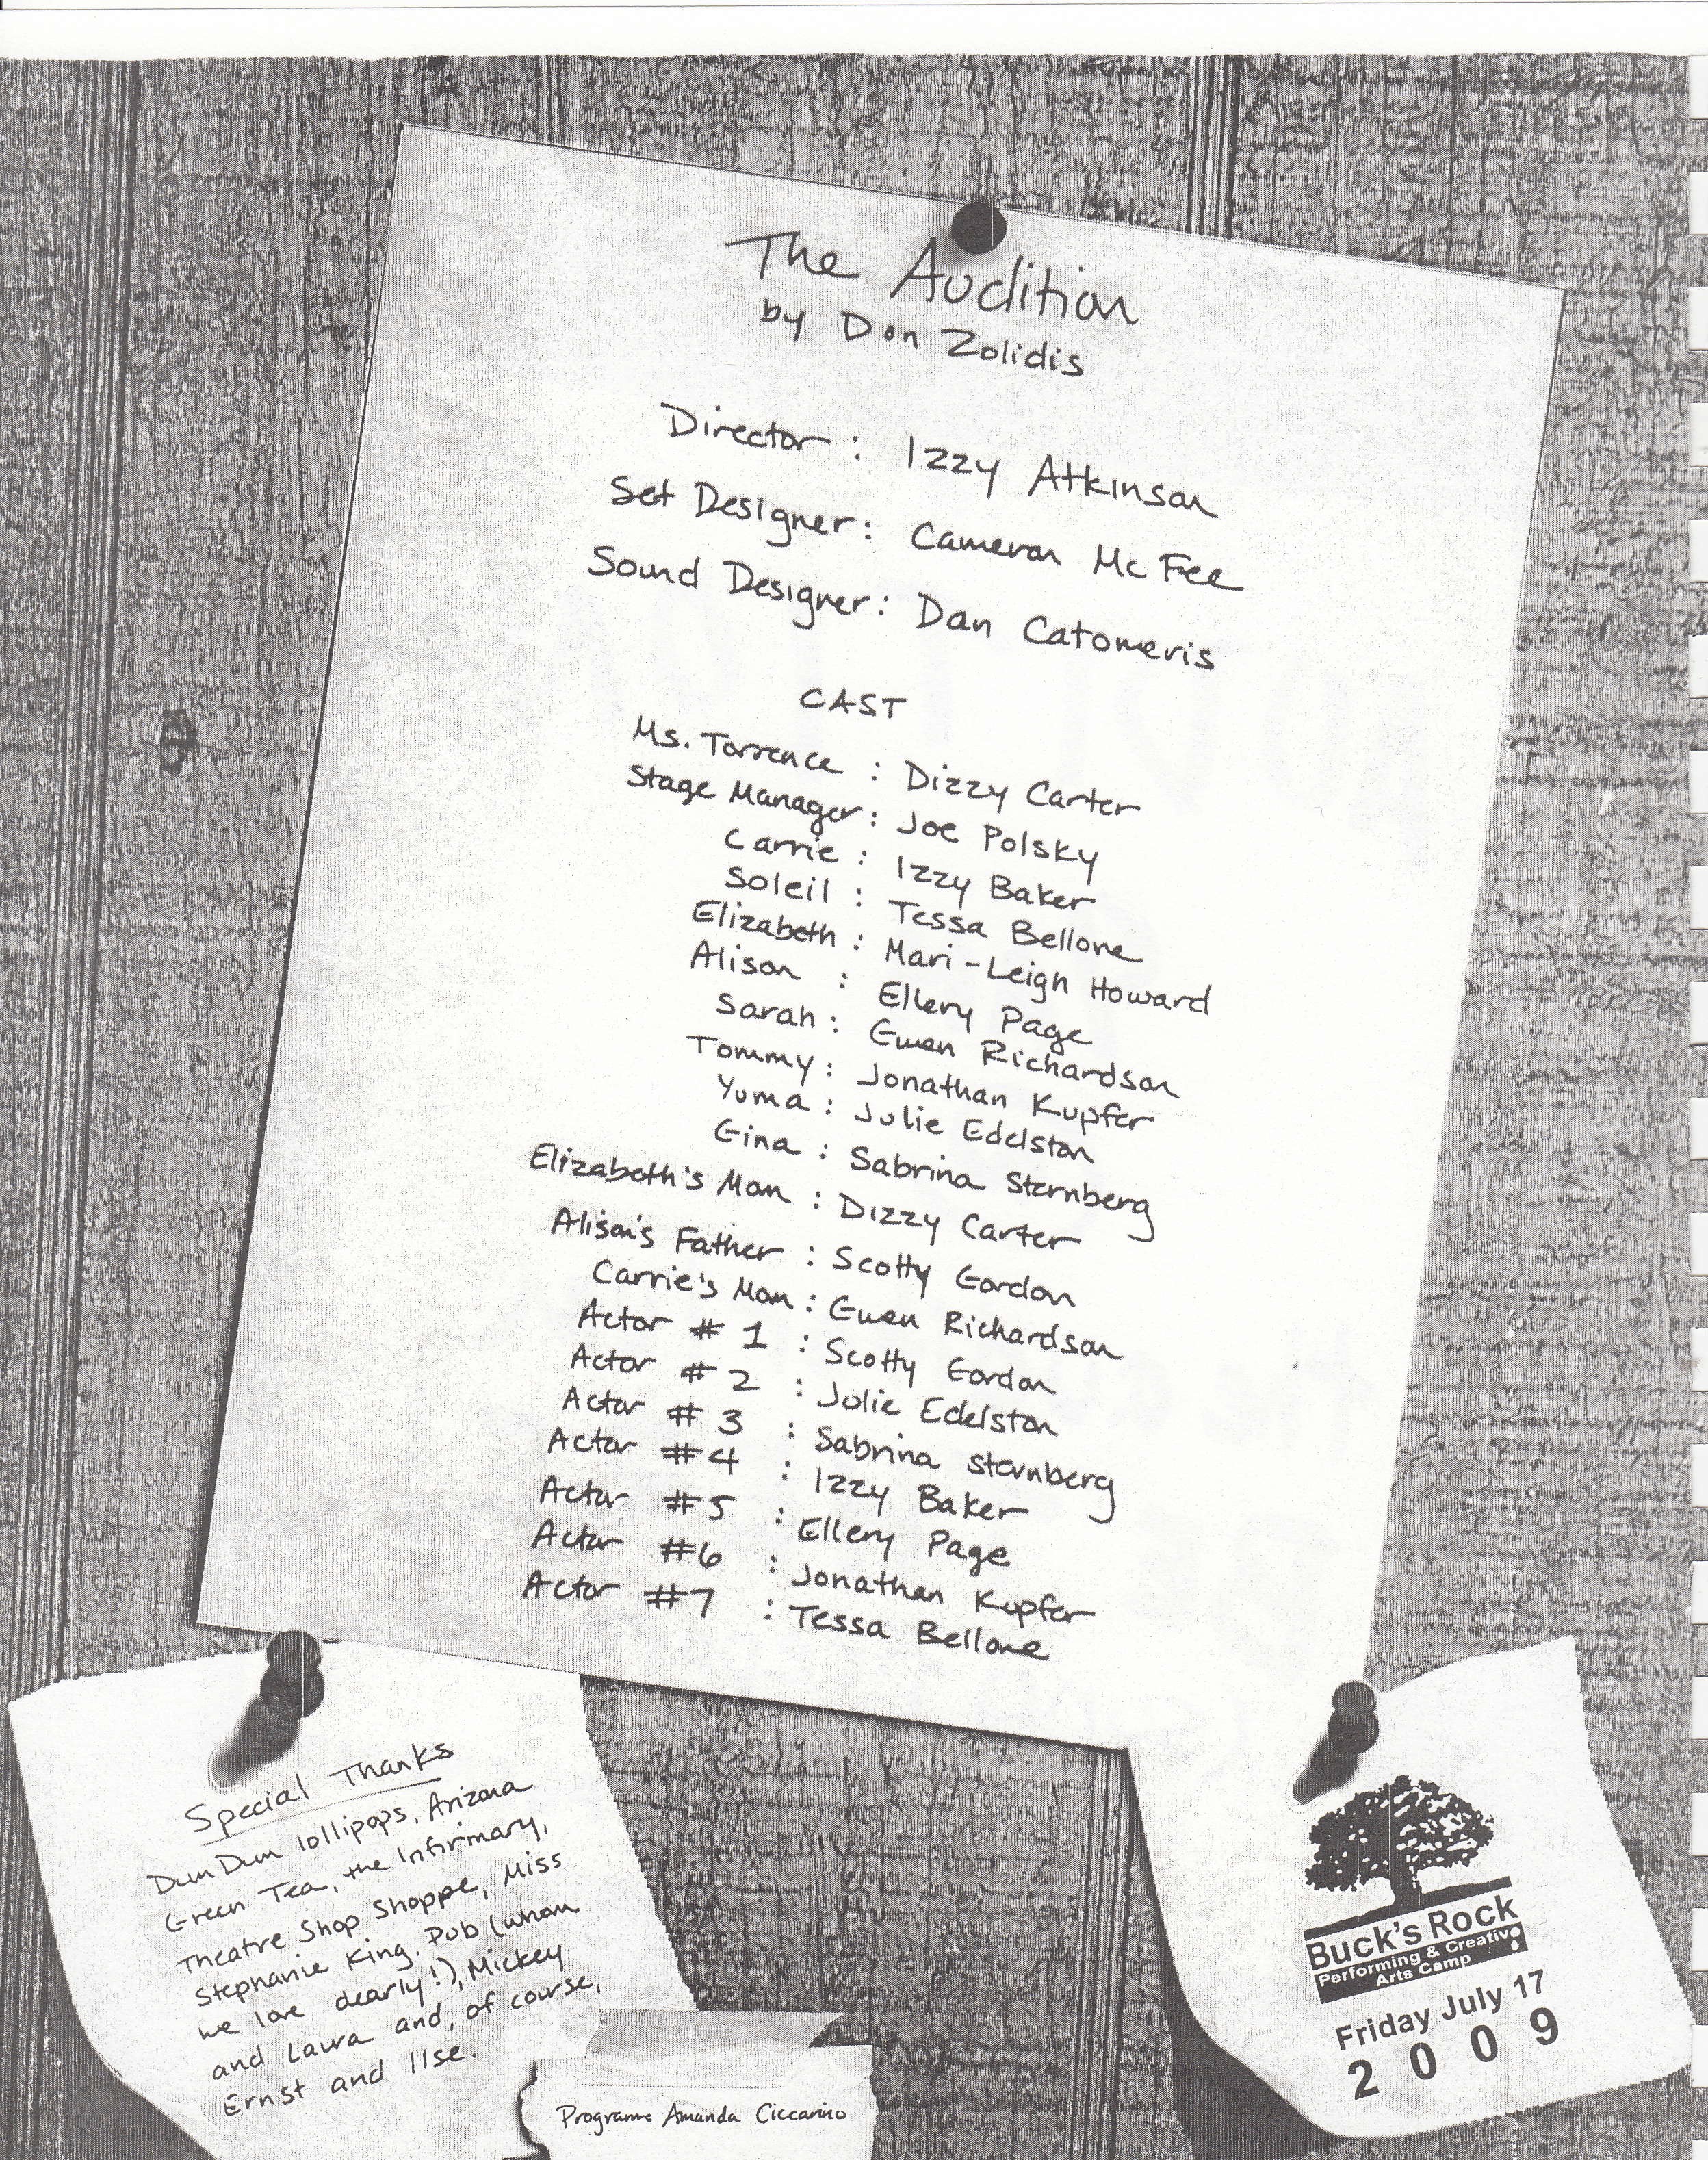 The Audition
by Don Zolidis
Director : Izzy Atkinson
Set Designer : Cameron McFee
Sound Designer : Dan Catomeris
CAST
Ms. Torrence : Dizzy Carter
Stage Manager : Joe Polsky
Carrie : Izzy Baker
Soleil : Tessa Bellone
Elizabeth : Mari-Leigh Howard
Alison : Ellery Page
Sarah : Gwen Richardson
Tommy : Jonathan Kupfer
Yuma : Julie Edelston
Gina : Sabrina Sternberg
Elizabeth's Mom : Dizzy Carter
Alison's Father : Scotty Gordon
Carrie's Mom : Gwen Richardson
Actor #1 : Scotty Gordon
Actor #2 : Julie Edelston
Actor #3 : Sabrina Sternberg
Actor #4 : Izzy Baker
Actor #5 : Ellery Page
Actor #6 : Jonathan Kupfer
Actor #7 : Tessa Bellone
Special Thanks
Dum Dum lollipops, Arizona
Green Tea, the Infirmary,
Theatre Shop Shoppe, Miss
Stephanie King. Pub (whom
we love dearly!), Mickey
and Laura and, of course,
Ernst and Ilse.
Program: Amanda Ciccarino
Buck's Rock
Performing & Creative
Arts Camp
Friday July 17
2009